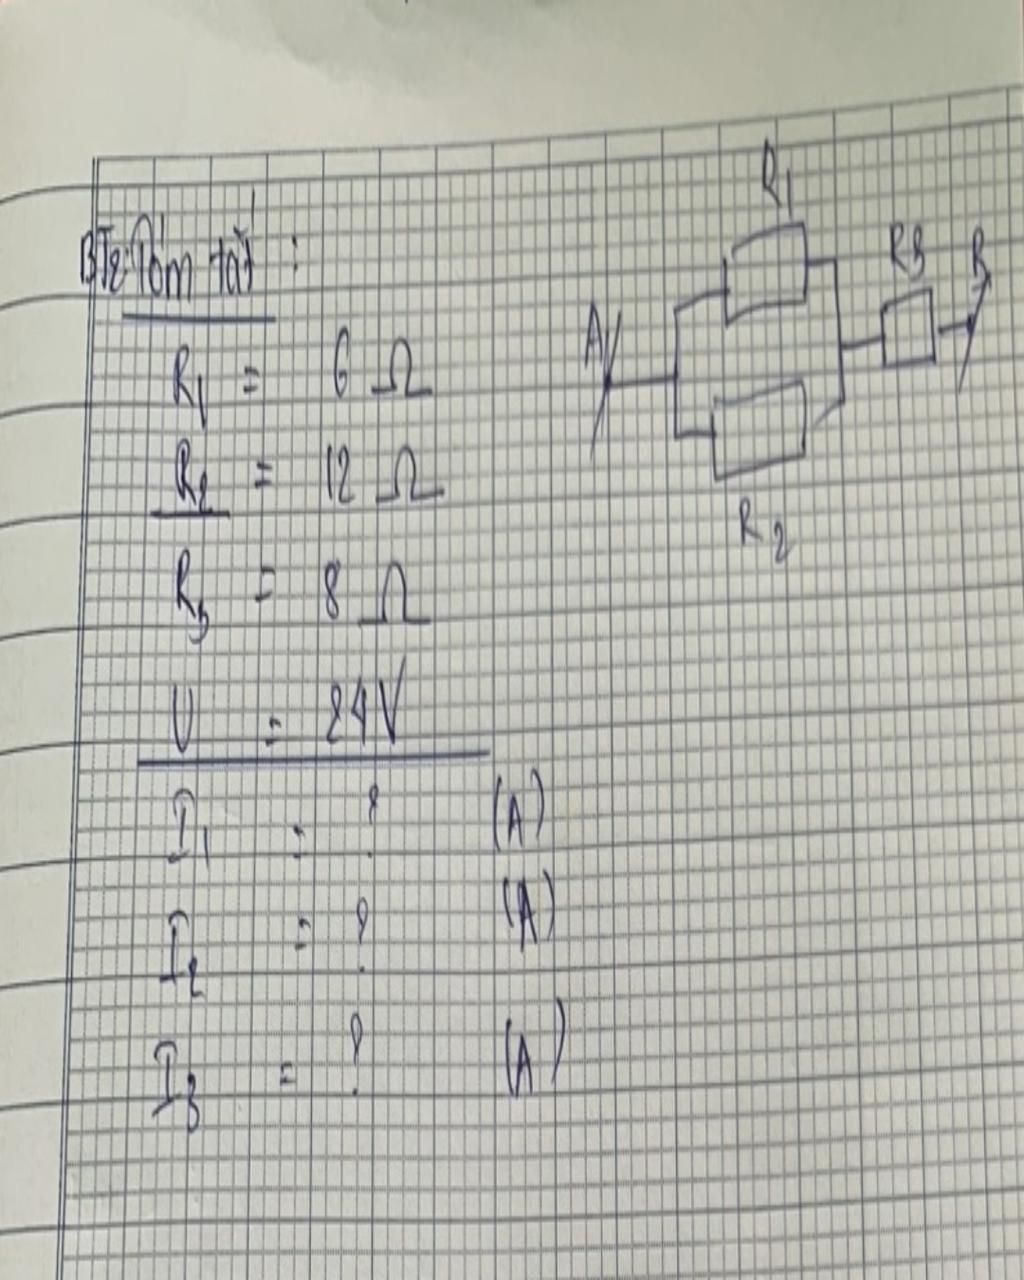 BT2: Tóm tắt :
R1 = 6 Ω
R2 = 12 Ω
R3 = 8 Ω
U = 24V
I1 = ? (A)
I2 = ? (A)
I3 = ? (A)
R1
A
R3
B
R2